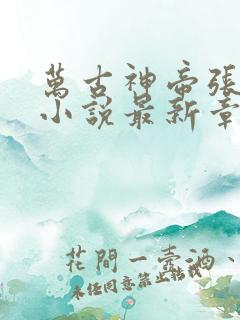 萬古神帝張
小說最新章
花間一壺酒、
未经同意禁止转载